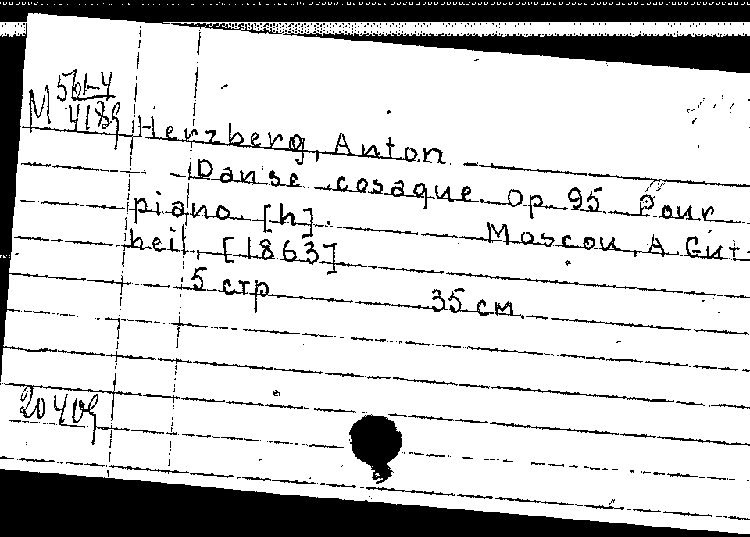 М 561-4
4189
Herzberg, Anton
Danse cosaque. Op. 95 Pour
piano. [h]. Moscou, A Gut-
heil, [1863]
5 стр 35 см.